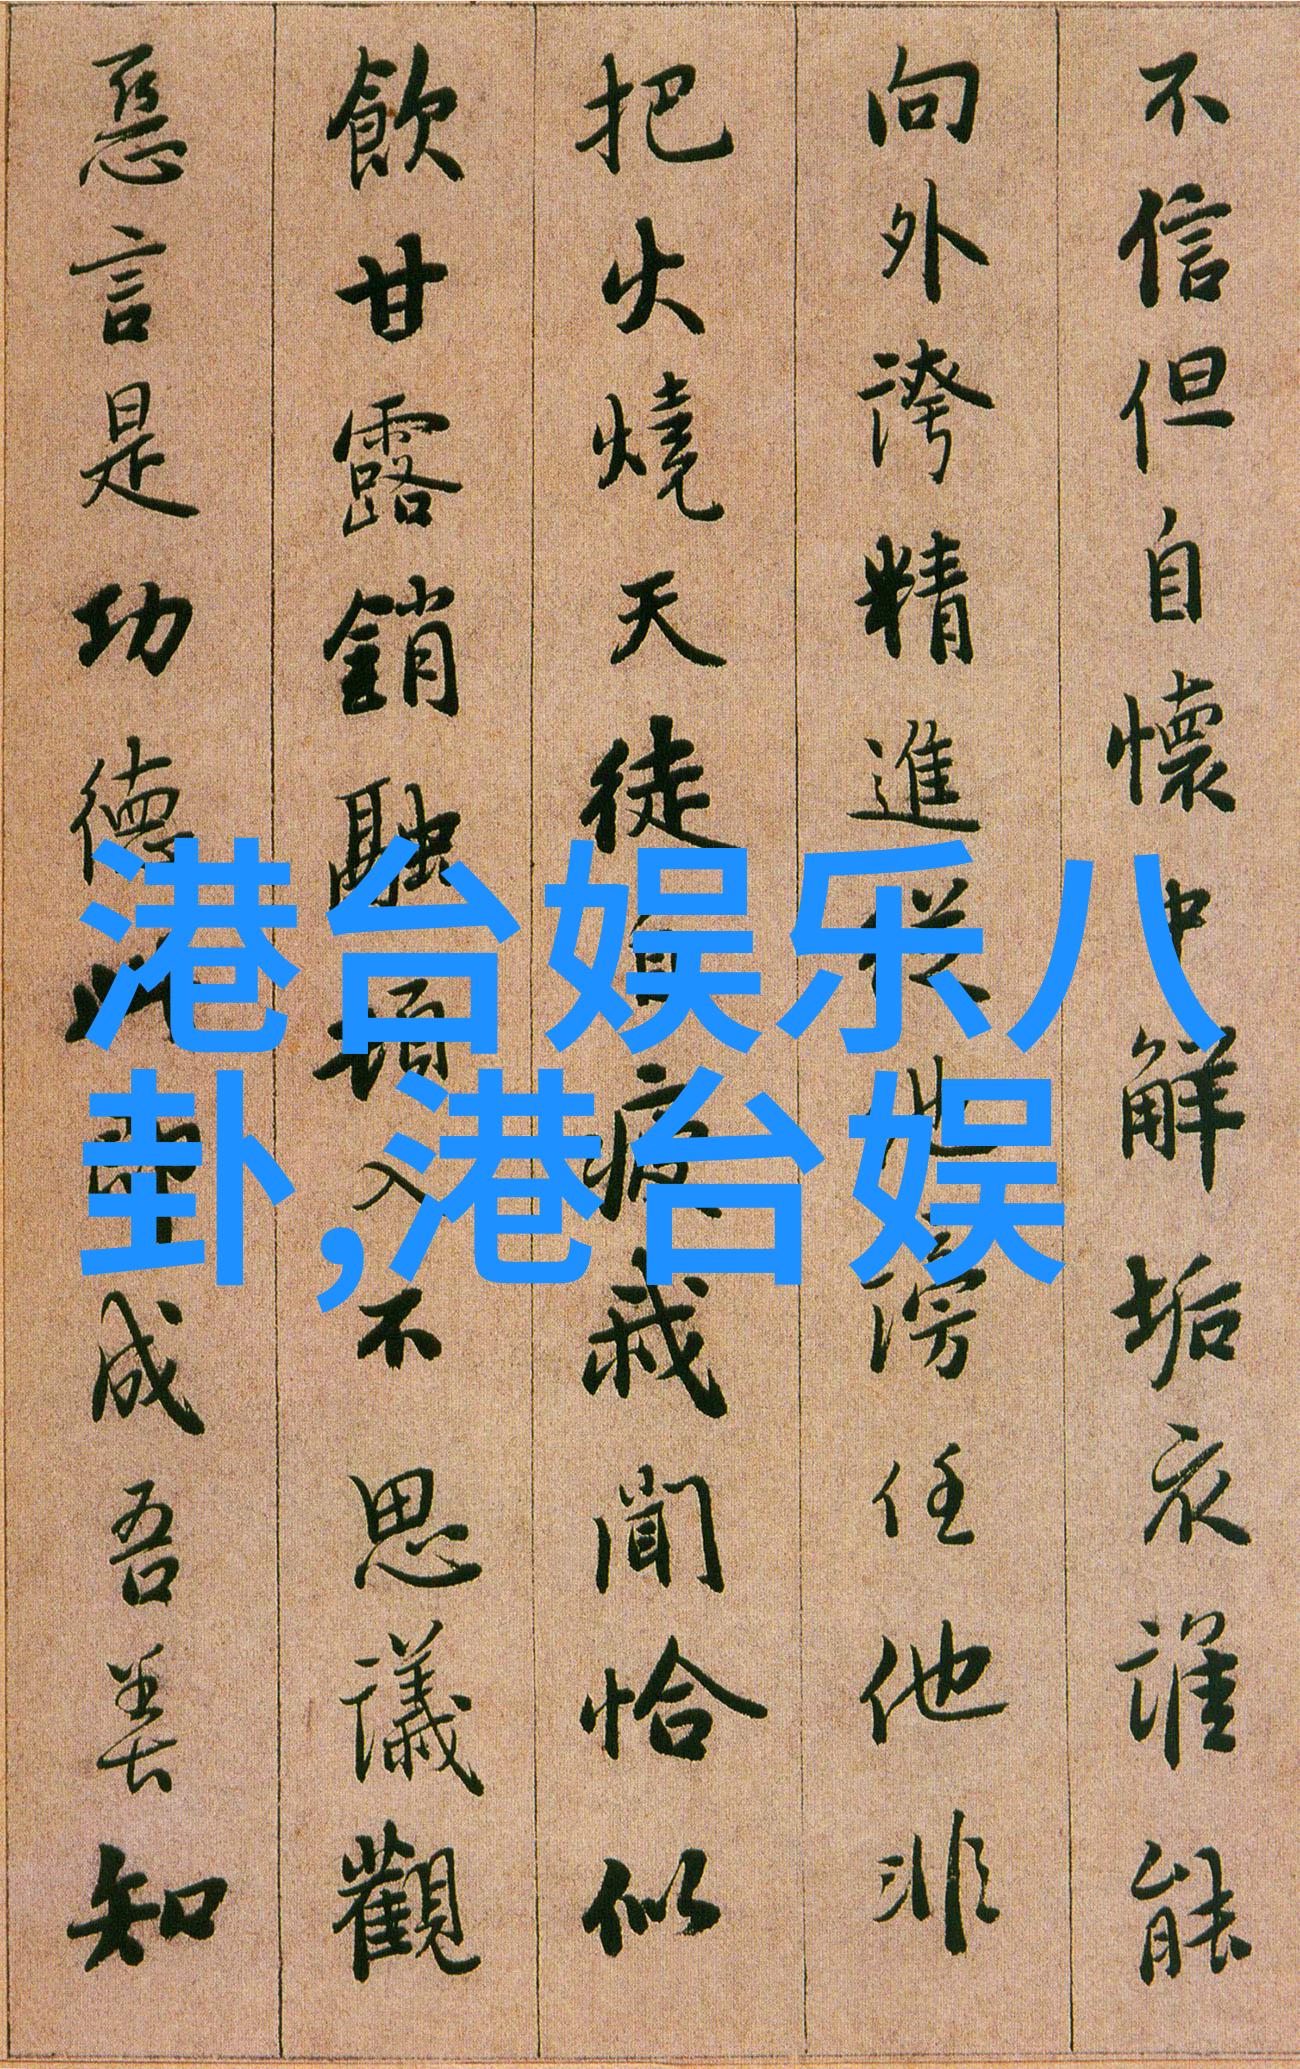 不信但自懷中解垢衣誰能
向外誇精進從他謗任他非
把火燒天徒自疲我聞恰似
飲甘露銷融頓入不思議觀
惡言是功德此即成吾善知
港台娱乐八
卦,港台娱